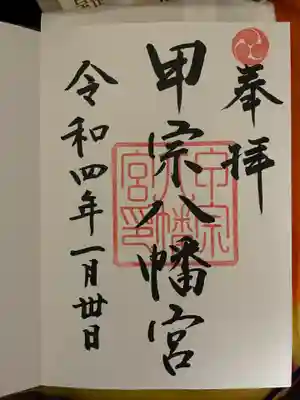 奉拝
甲宗八幡宮
甲宗八幡宮印
令和四年一月卅日